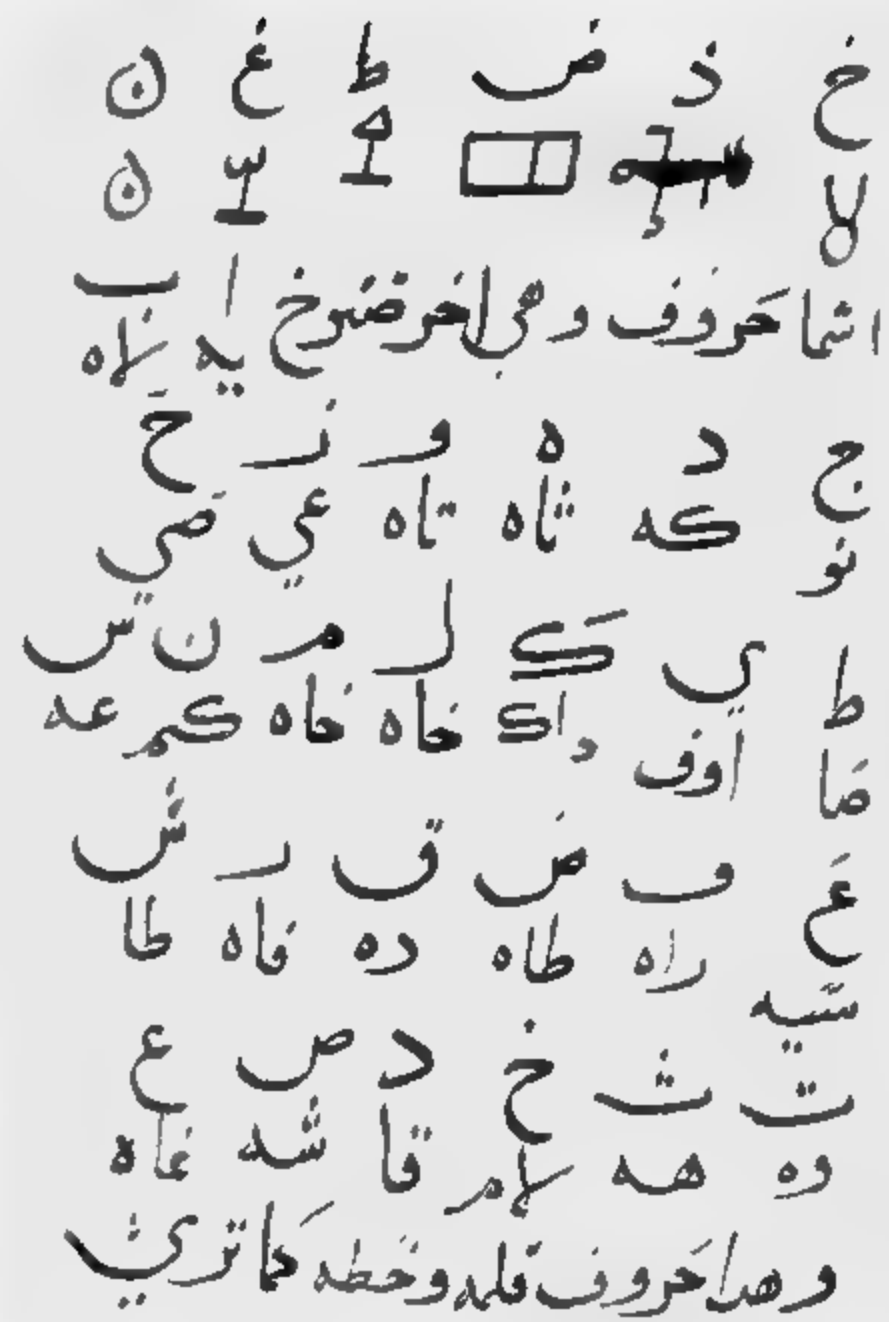 خ ذ ض ظ غ ن
انما حروف وهي اخر ا ب
يه لاه
ج د ه و ز ح
نو كه ثاه تاه عي صي
ط ي ك ل م ن س
صا اوف اك خاه خاه كم عه
ع ف ض ق ر ش
سيه راه طاه ده فاه طا
ت ث خ د ص ع
وه هه لام قا شه غاه
وهدا حروف قلمه وخطه كما تري